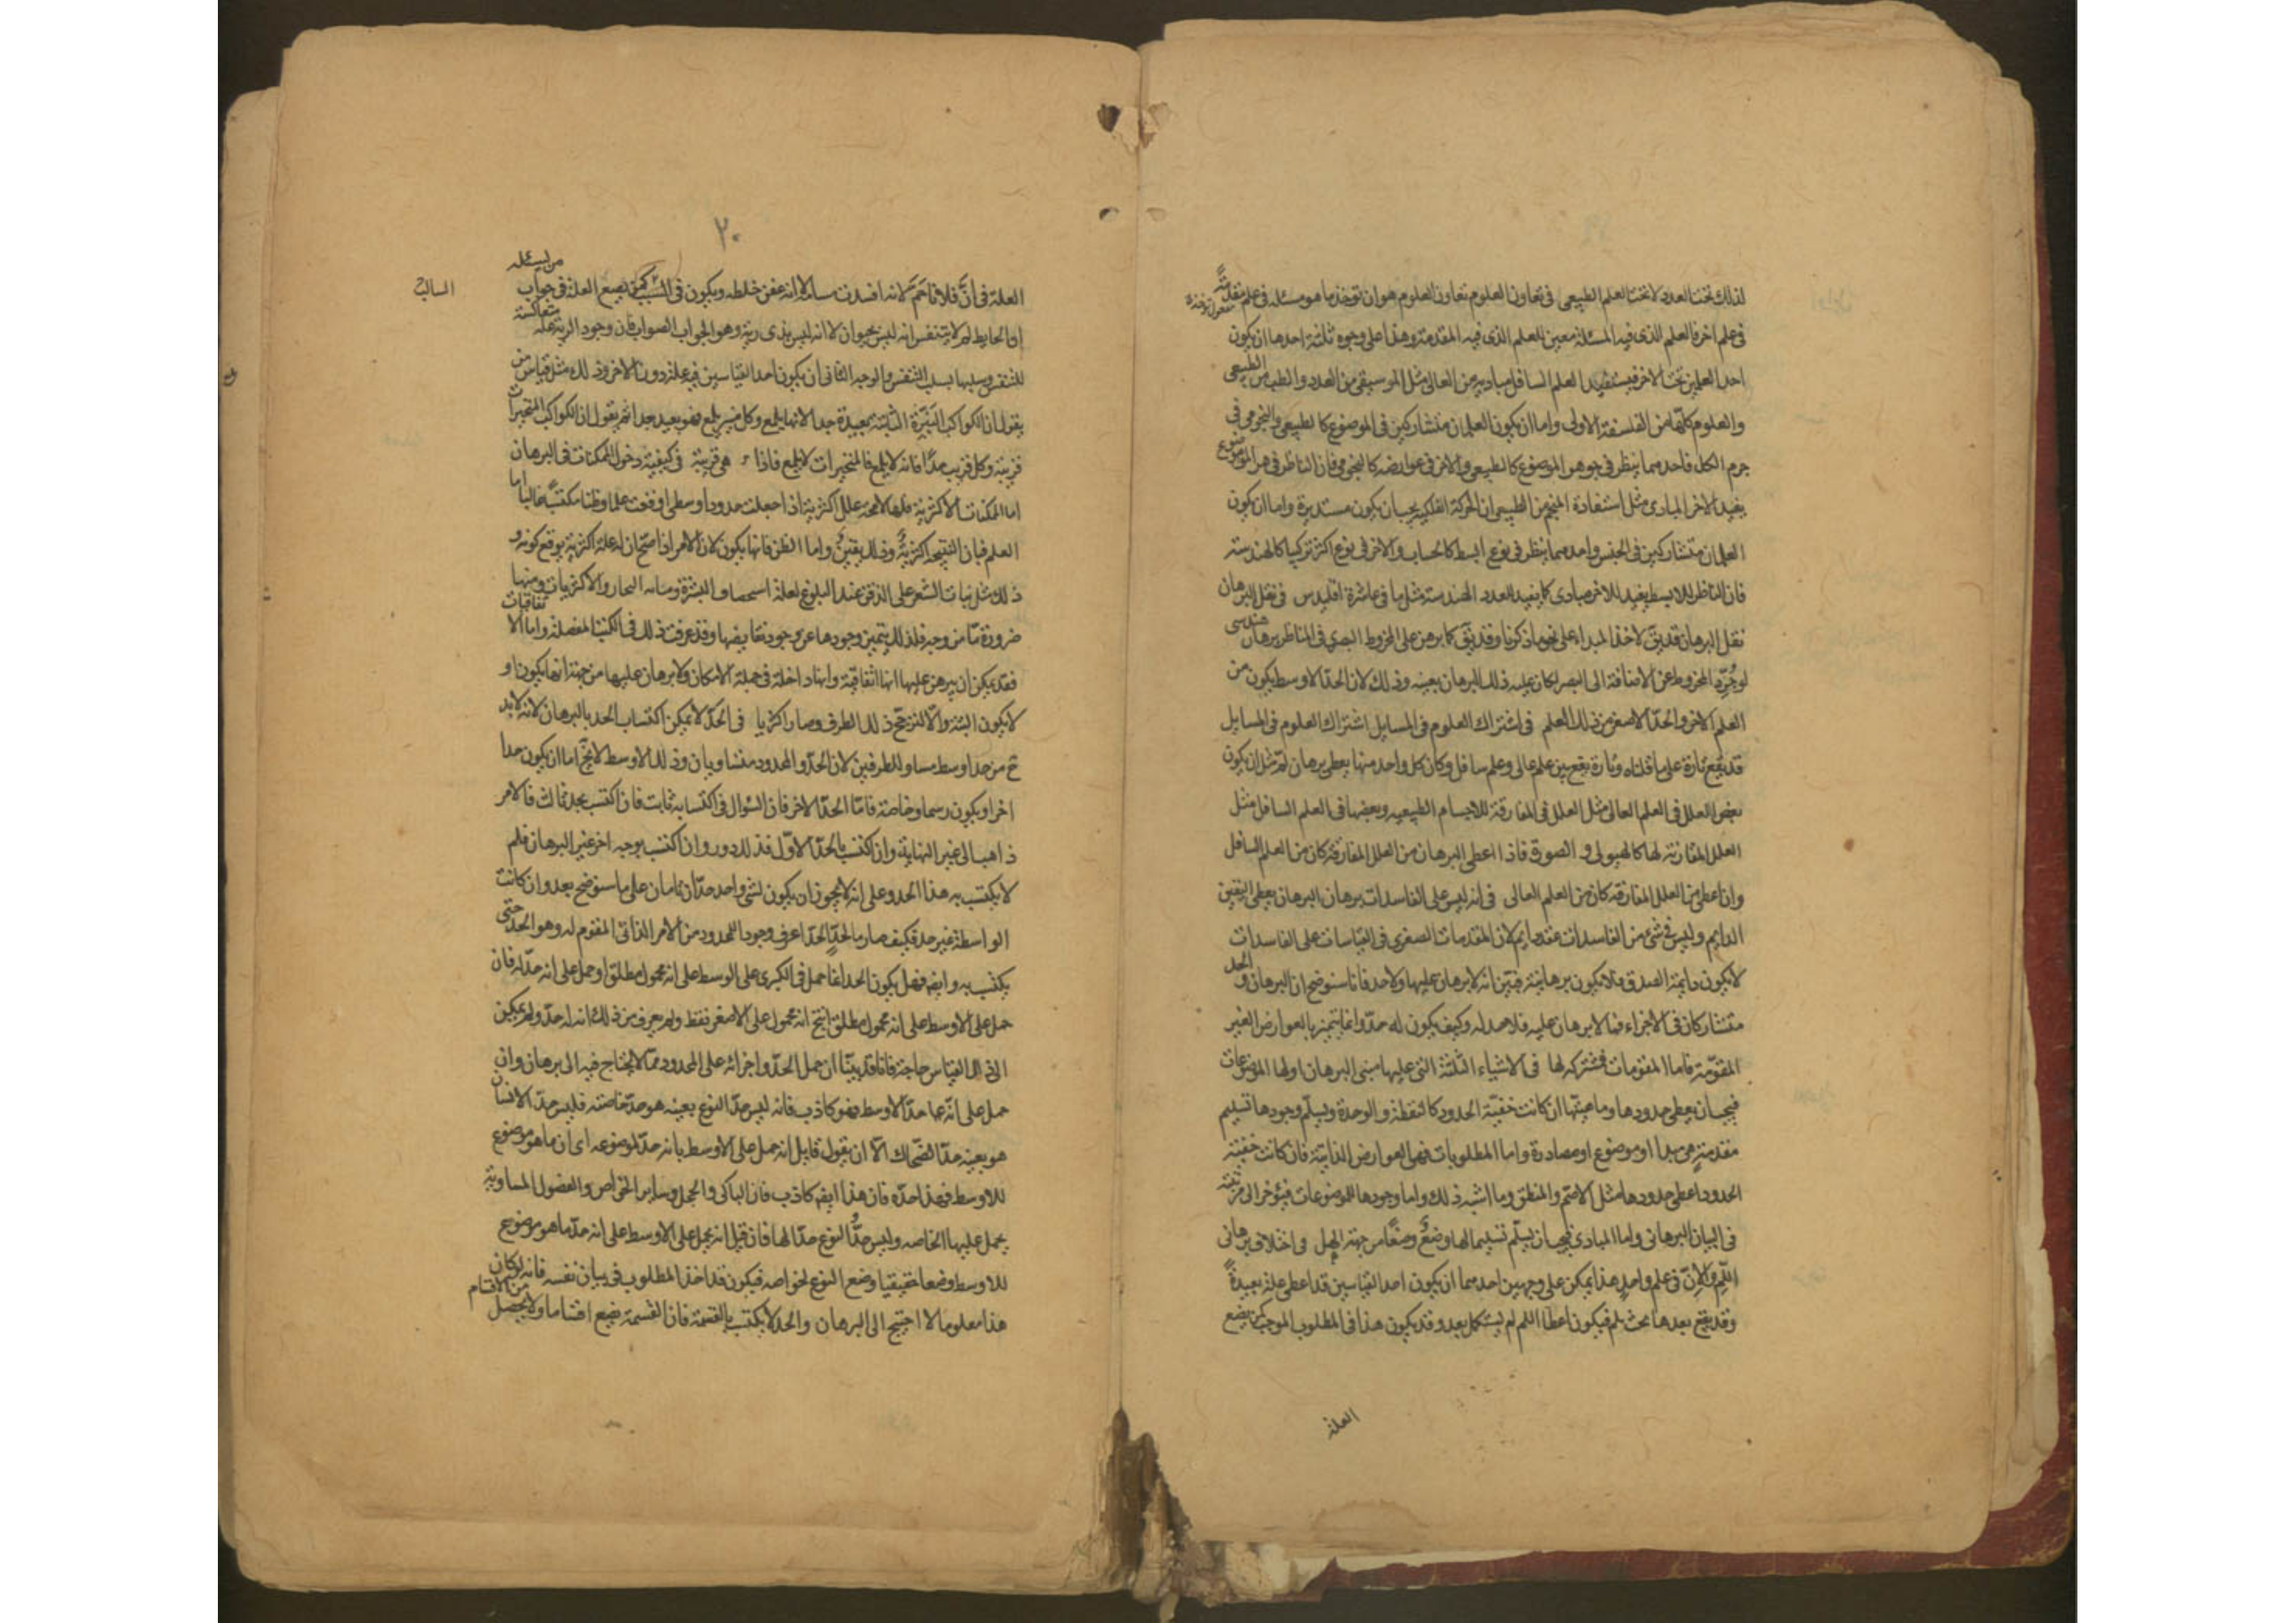 لذلك تحت العدد لا تحت العلم الطبيعى فى تعاون العلوم تعاون العلوم هو ان توخذ ما هو مسئله فى علم مقدمةً
فى علم اخر فالعلم الذى فيه المسئله معين للعلم الذى فيه المقدمة وهذا على وجوه ثلثة احدها ان يكون
احد العلمين تحت الاخر فيستفيد العلم السافل مباديه من العالى مثل الموسيقى من العدد والطب من الطبيعى
والعلوم كلها من الفلسفة الاولى واما ان يكون العلمان متشاركين فى الموضوع كالطبيعى والنجومى فى
جرم الكل فاحدهما ينظر فى جوهر الموضوع كالطبيعى والاخر فى عوارضه كالنجومى فان الناظر فى جوهر الموضوع
يفيد الاخر المبادى مثل استفادة المنجم من الطبيعى ان الحركة الفلكيه يجب ان يكون مستديرة واما ان يكون
العلمان متشاركين فى الجنس واحدهما ينظر فى نوع ابسط كالحساب والاخر فى نوع اكثر تركيبا كالهندسة
فان الناظر للابسط يفيد للاخر مبادى كما يفيد العدد الهندسة مثل ما فى عاشرة اقليدس فى نقل البرهان
نقل البرهان قد يق لاخذ المبداء على نحو ما ذكرنا وقد يق كما برهن على المخروط البصرى فى المناظر برهان هندسى
لو جُرِّد المخروط عن الاضافة الى البصر لكان عليه ذلك البرهان بعينه وذلك لان الحدّ الاوسط يكون من
العلم الاخر والحدّ الاصغر من ذلك العلم فى اشتراك العلوم فى المسايل اشتراك العلوم فى المسايل
قد يقع تارة على ما قلناه وتارة يقع بين علم عالى وعلم سافل وكان كل واحد منهما يعطى برهان لم مثل ان يكون
بعض العلل فى العلم العالى مثل العلل المفارقة للاجسام الطبيعيه وبعضها فى العلم السافل مثل
العلل المقارنة لها كالهيولى و الصورة فاذا اعطى البرهان من العلل المقارنة كان من العلم السافل
وان اعطى من العلل المفارقه كان من العلم العالى فى انه ليس على الفاسدات برهان البرهان يعطى اليقين
الدايم وليس فى شئ من الفاسدات عقد دايم لان المقدمات الصغرى فى القياسات على الفاسدات
لا يكون دايمة الصدق فلا يكون برهانية فبيّن انه لا برهان عليها ولا حد فانا سنوضح ان البرهان و الحد
متشاركان فى الاجزاء فما لا برهان عليه فلا حد له وكيف يكون له حدّ وانما يتميز بالعوارض الغير
المقوّمة فاما المقومات فمشتركه لها فى الاشياء الثلثة التى عليها مبنى البرهان اولها الموضوعات
فيجب ان يعطى حدودها وماهيتها ان كانت خفيّة الحدود كالنقطة و الوحدة ويسلم وجودها تسليم
مقدمة هى مبدا او موضوع او مصادرة واما المطلوبات فهى العوارض الذاتية فان كانت خفيّة
الحدود اعطى حدودها مثل الاصم والمنطق وما اشبه ذلك واما وجودها للموضوعات فيؤخر الى مرتبته
فى البيان البرهانى واما المبادى فيجب ان يسلّم تسليما لها وضعٌ وضعًا من جهة الهل فى اختلاف برهانى
اللّم والاِنّ فى علم واحد هذا يمكن على وجهين احدهما ان يكون احد القياسين قد اعطى علة بعيدةً
وقد يقع بعدها بحث بلم فيكون اعطا اللم لم يستكمل بعد وقد يكون هذا فى المطلوب الموجب كمن يضع
العلة
٢٠
العلة فى انَّ فلانا حُمَّ لانه انسدت مسامه لا انه عفن خلطه ويكون فى السلب كمن يضع العلة فى جواب من يسئله
ان الحايط لم لا يتنفس انه ليس بحيوان لا انه ليس بذى رية وهو الجواب الصواب فان وجود الرية علة متعاكسة
للتنفس وسلبها سلب التنفس والوجه الثانى ان يكون احد القياسين فيه علة دون الاخر وذلك مثل قياس من
يقول ان الكواكب النيّرة الثابتة بعيدة جدا لانها يلمع وكل منير يلمع فهو بعيد جدا ثم يقول ان الكواكب المتحيرات
قريبة وكل قريب جدًا فانه لا يلمع فالمتحيرات لا يلمع فاذا هى قريبة فى كيفية دخول الممكنات فى البرهان
اما الممكنات الاكثرية فلها لا محه علل اكثرية اذا جعلت حدودا وسطى اوقعت علما وظنا مكتسبًا غالبا اما
العلم فبان النتيجه اكثريةٌ وذلك يقينٌ واما الظن فانها يكون لان الامر اذا صحّ ان له علة اكثرية يوقع كونه و
ذلك مثل نبات الشعر على الذقن عند البلوغ لعلة استحصاف البشرة ومتانه البخار والاكثريات ومنها
ضرورة مّا من وجه فلذلك يتميز وجودها عن وجود نقايضها وقد عرفت ذلك فى الكتب المفصلة واما الاتفاقيات
فقد يمكن ان يبرهن عليها انها اتفاقية وانها داخلة فى جملة الامكان ولا برهان عليها من جهة انها يكون او
لا يكون البتة والا لترجّح ذلك الطرف وصار اكثريا فى الحدّ لا يمكن اكتساب الحد بالبرهان لانه لابد
ح من حد اوسط مساو للطرفين لان الحدّ والمحدود متساويان وذلك الاوسط لا يخ اما ان يكون حدا
اخر او يكون رسما وخاصة فامّا الحدّ الاخر فان السّوال فى اكتسابه ثابت فان اكتسب بحد ثالث فالامر
ذاهب الى غير النهاية وان اكتسب بالحدّ الاوّل فذلك دور وان اكتسب بوجه اخر غير البرهان فلم
لا يكتسب به هذا الحد وعلى انه لا يجوز ان يكون لشئ واحد حدّان تامان على ما سنوضح بعد وان كانت
الواسطة غير حد فكيف صار ما ليس بحد اعرف وجودا للمحدود من الامر الذاتى المقوم له وهو الحدّ حتى
يكتسب به وايضه فهل يكون الحد انما حمل فى الكبرى على الوسط على انه محمول مطلقا او حمل على انه حدّ له فان
حمل على الاوسط على انه محمول مطلق انتج انه محمول على الاصغر فقط ولم يعرف من ذلك انه له حدّ ولم يكن
الى القياس حاجة فانا قد بيّنا ان حمل الحدّ و اجزائه على المحدود مما لا يحتاج فيه الى برهان وان
حمل على انّه حدّ الاوسط فهو كاذب فانه ليس حدّ النوع بعينه هو حدّ خاصته فليس حدّ الانسان
هو بعينه حدّ الضحّاك الّا ان يقول قايل انه حمل على الاوسط بانه حدّ لموضوعه اى ان ما هو موضوع
للاوسط فهذا حدّه فان هذا ايضه كاذب فان الباكى والخجل وساير الخواص والفصول المساوية
يحمل عليها الخاصه وليس حدُّ النوع حدّا لها فان قيل انه يحمل على الاوسط على انه حدّ ما هو موضوع
للاوسط وضعا حقيقيا وضع النوع لخواصه فيكون قد اخذ المطلوب فى بيان نفسه فانه لو كان
هذا معلوما لا احتيج الى البرهان والحد لا يكتسب بالقسمة فان القسمة يضع اقساما ولا يحصل من الاقسام